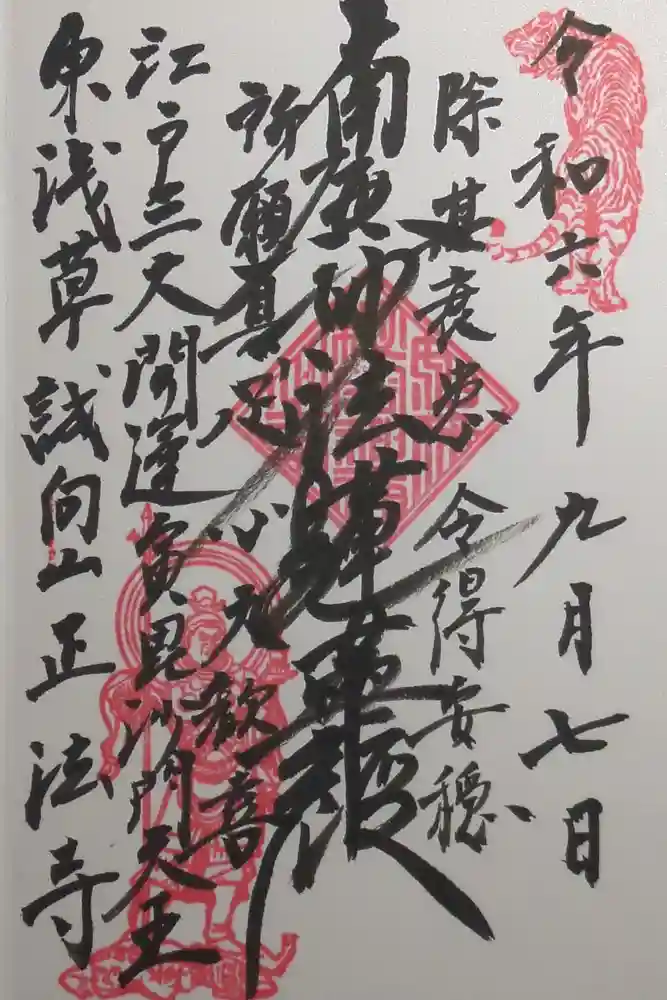 令和六年 九月七日
除其衰患 令得安穏
南無妙法蓮華経
所願具足 心大歓喜
江戸三大 開運寅毘沙門天王
東浅草 誠向山正法寺